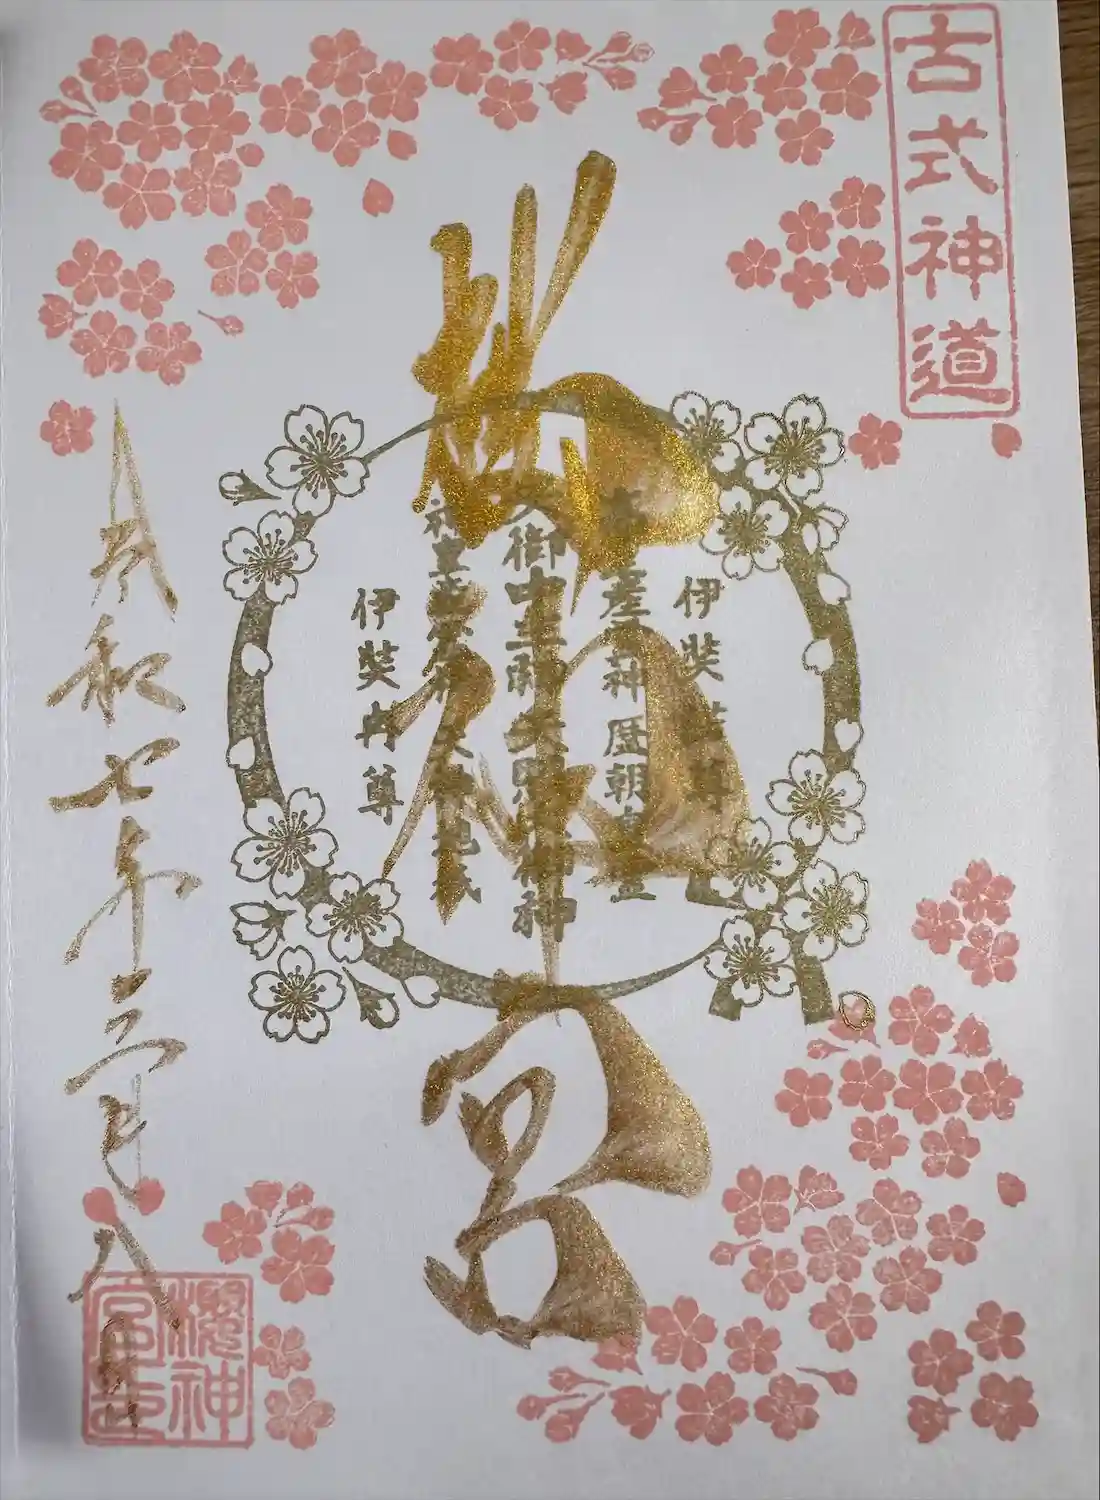 古式神道
伊奘諾尊
高皇産霊神 歴朝皇霊
天御中主神 天照大御神
神皇産霊神 天神地祇
伊奘冉尊
櫻神宮
令和七年三月八日
櫻神宮